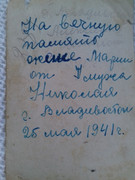 На вечную
память
Марии
от
Николая
г. Владивосток
25 мая 1941 г.